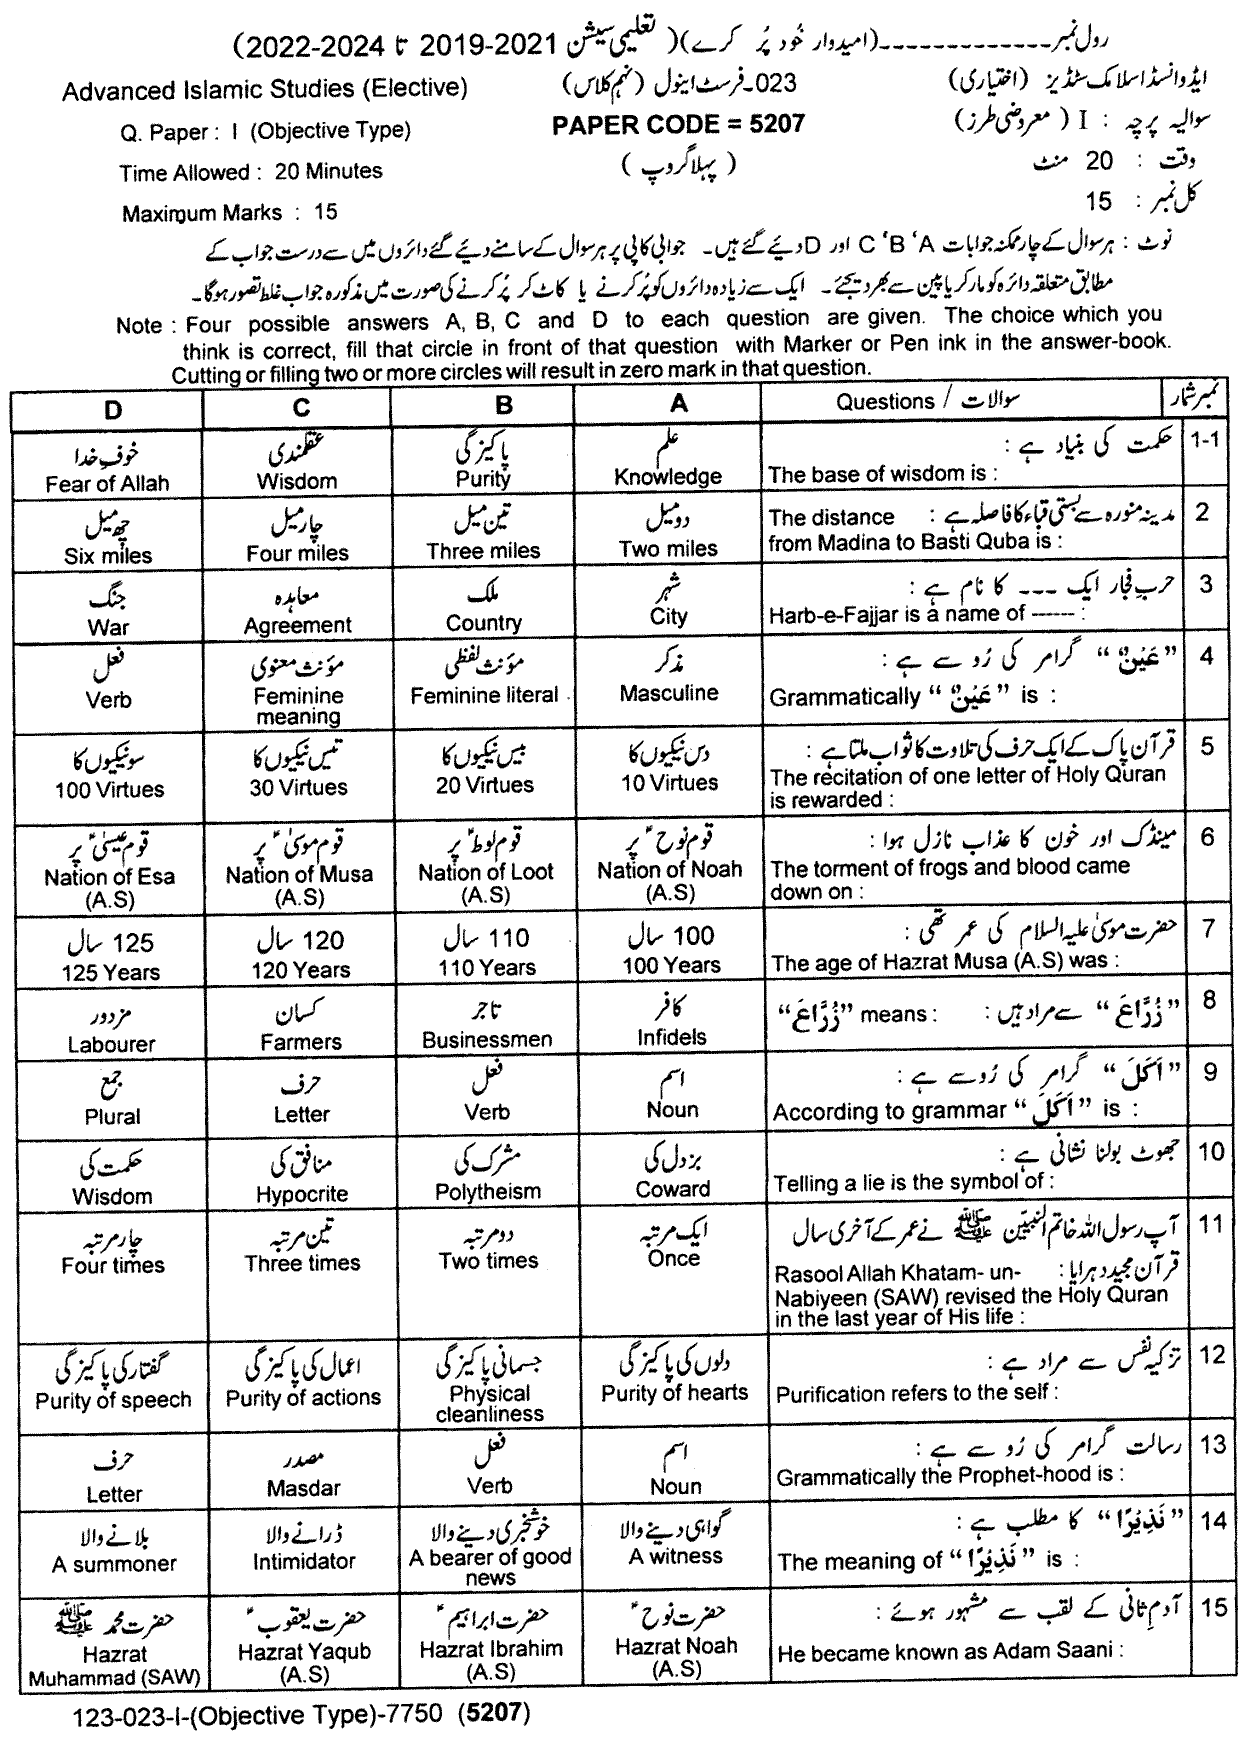 رول نمبر ـــــــــــــــ (امیدوار خود پُر کرے) (تعلیمی سیشن 2021-2019 تا 2024-2022)
Advanced Islamic Studies (Elective) 023۔فرسٹ اینول (نہم کلاس) ایڈوانسڈ اسلامک سٹڈیز (اختیاری)
Q. Paper : I (Objective Type) PAPER CODE = 5207 سوالیہ پرچہ : I (معروضی طرز)
Time Allowed : 20 Minutes (پہلا گروپ) وقت : 20 منٹ
Maximum Marks : 15 کل نمبر : 15
نوٹ : ہر سوال کے چار ممکنہ جوابات A ‘B ‘C اور D دیئے گئے ہیں۔ جوابی کاپی پر ہر سوال کے سامنے دیئے گئے دائروں میں سے درست جواب کے
مطابق متعلقہ دائرہ کو مارکر یا پین سے بھر دیجئے۔ ایک سے زیادہ دائروں کو پُر کرنے یا کاٹ کر پُر کرنے کی صورت میں مذکورہ جواب غلط تصور ہوگا۔
Note : Four possible answers A, B, C and D to each question are given. The choice which you
think is correct, fill that circle in front of that question with Marker or Pen ink in the answer-book.
Cutting or filling two or more circles will result in zero mark in that question.
D C B A Questions / سوالات نمبر شمار
1-1 حکمت کی بنیاد ہے :
The base of wisdom is :
علم پاکیزگی عقلمندی خوفِ خدا
Knowledge Purity Wisdom Fear of Allah
2 مدینہ منورہ سے بستی قباء کا فاصلہ ہے : The distance
from Madina to Basti Quba is :
دو میل تین میل چار میل چھ میل
Two miles Three miles Four miles Six miles
3 حربِ فجار ایک --- کا نام ہے :
Harb-e-Fajjar is a name of ----- :
شہر ملک معاہدہ جنگ
City Country Agreement War
4 ”عَیْنٌ“ گرامر کی رُو سے ہے :
Grammatically “عَیْنٌ” is :
مذکر مؤنث لفظی مؤنث معنوی فعل
Masculine Feminine literal Feminine meaning Verb
5 قرآن پاک کے ایک حرف کی تلاوت کا ثواب ملتا ہے :
The recitation of one letter of Holy Quran
is rewarded :
دس نیکیوں کا بیس نیکیوں کا تیس نیکیوں کا سو نیکیوں کا
10 Virtues 20 Virtues 30 Virtues 100 Virtues
6 مینڈک اور خون کا عذاب نازل ہوا :
The torment of frogs and blood came
down on :
قوم نوحؑ پر قوم لوطؑ پر قوم موسیٰؑ پر قوم عیسیٰؑ پر
Nation of Noah (A.S) Nation of Loot (A.S) Nation of Musa (A.S) Nation of Esa (A.S)
7 حضرت موسیٰ علیہ السلام کی عمر تھی :
The age of Hazrat Musa (A.S) was :
100 سال 110 سال 120 سال 125 سال
100 Years 110 Years 120 Years 125 Years
8 ”زُرَّاعَ“ سے مراد ہیں : “زُرَّاعَ” means :
کافر تاجر کسان مزدور
Infidels Businessmen Farmers Labourer
9 ”اَکَلَ“ گرامر کی رُو سے ہے :
According to grammar “اَکَلَ” is :
اسم فعل حرف جمع
Noun Verb Letter Plural
10 جھوٹ بولنا نشانی ہے :
Telling a lie is the symbol of :
بزدل کی مشرک کی منافق کی حکمت کی
Coward Polytheism Hypocrite Wisdom
11 آپ رسول اللہ خاتم النبیّین ﷺ نے عمر کے آخری سال
قرآن مجید دہرایا : Rasool Allah Khatam- un-
Nabiyeen (SAW) revised the Holy Quran
in the last year of His life :
ایک مرتبہ دو مرتبہ تین مرتبہ چار مرتبہ
Once Two times Three times Four times
12 تزکیہ نفس سے مراد ہے :
Purification refers to the self :
دلوں کی پاکیزگی جسمانی پاکیزگی اعمال کی پاکیزگی گفتار کی پاکیزگی
Purity of hearts Physical cleanliness Purity of actions Purity of speech
13 رسالت گرامر کی رُو سے ہے :
Grammatically the Prophet-hood is :
اسم فعل مصدر حرف
Noun Verb Masdar Letter
14 ”نَذِیْرًا“ کا مطلب ہے :
The meaning of “نَذِیْرًا” is :
گواہی دینے والا خوشخبری دینے والا ڈرانے والا بلانے والا
A witness A bearer of good news Intimidator A summoner
15 آدمِ ثانی کے لقب سے مشہور ہوئے :
He became known as Adam Saani :
حضرت نوحؑ حضرت ابراہیمؑ حضرت یعقوبؑ حضرت محمد ﷺ
Hazrat Noah (A.S) Hazrat Ibrahim (A.S) Hazrat Yaqub (A.S) Hazrat Muhammad (SAW)
123-023-I-(Objective Type)-7750 (5207)